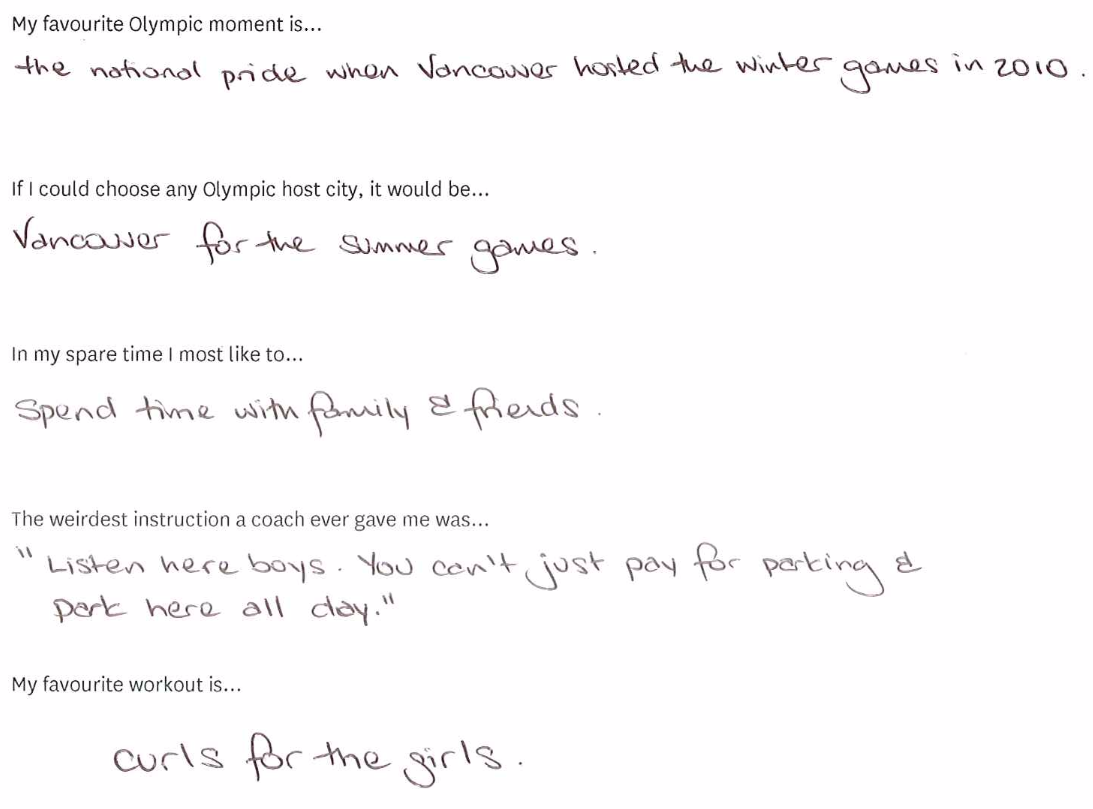 My favourite Olympic moment is...
the national pride when Vancouver hosted the winter games in 2010.
If I could choose any Olympic host city, it would be...
Vancouver for the summer games.
In my spare time I most like to...
Spend time with family & friends.
The weirdest instruction a coach ever gave me was...
"Listen here boys. You can't just pay for parking &
park here all day."
My favourite workout is...
curls for the girls.